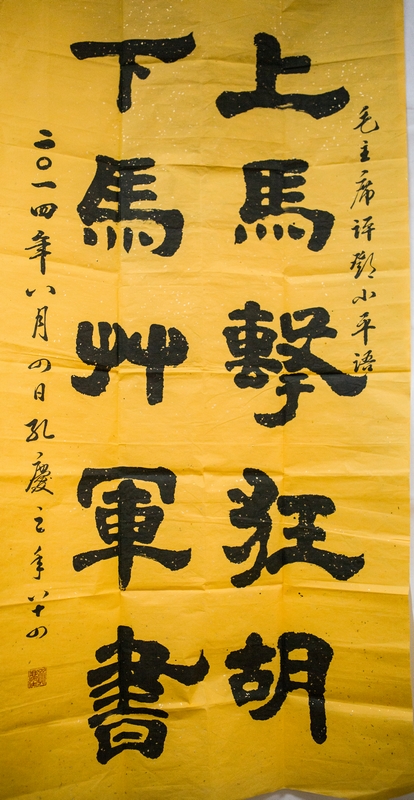 毛主席评鄧小平語
上馬擊狂胡
下馬艸軍書
二〇一四年八月四日孔慶之年八十四